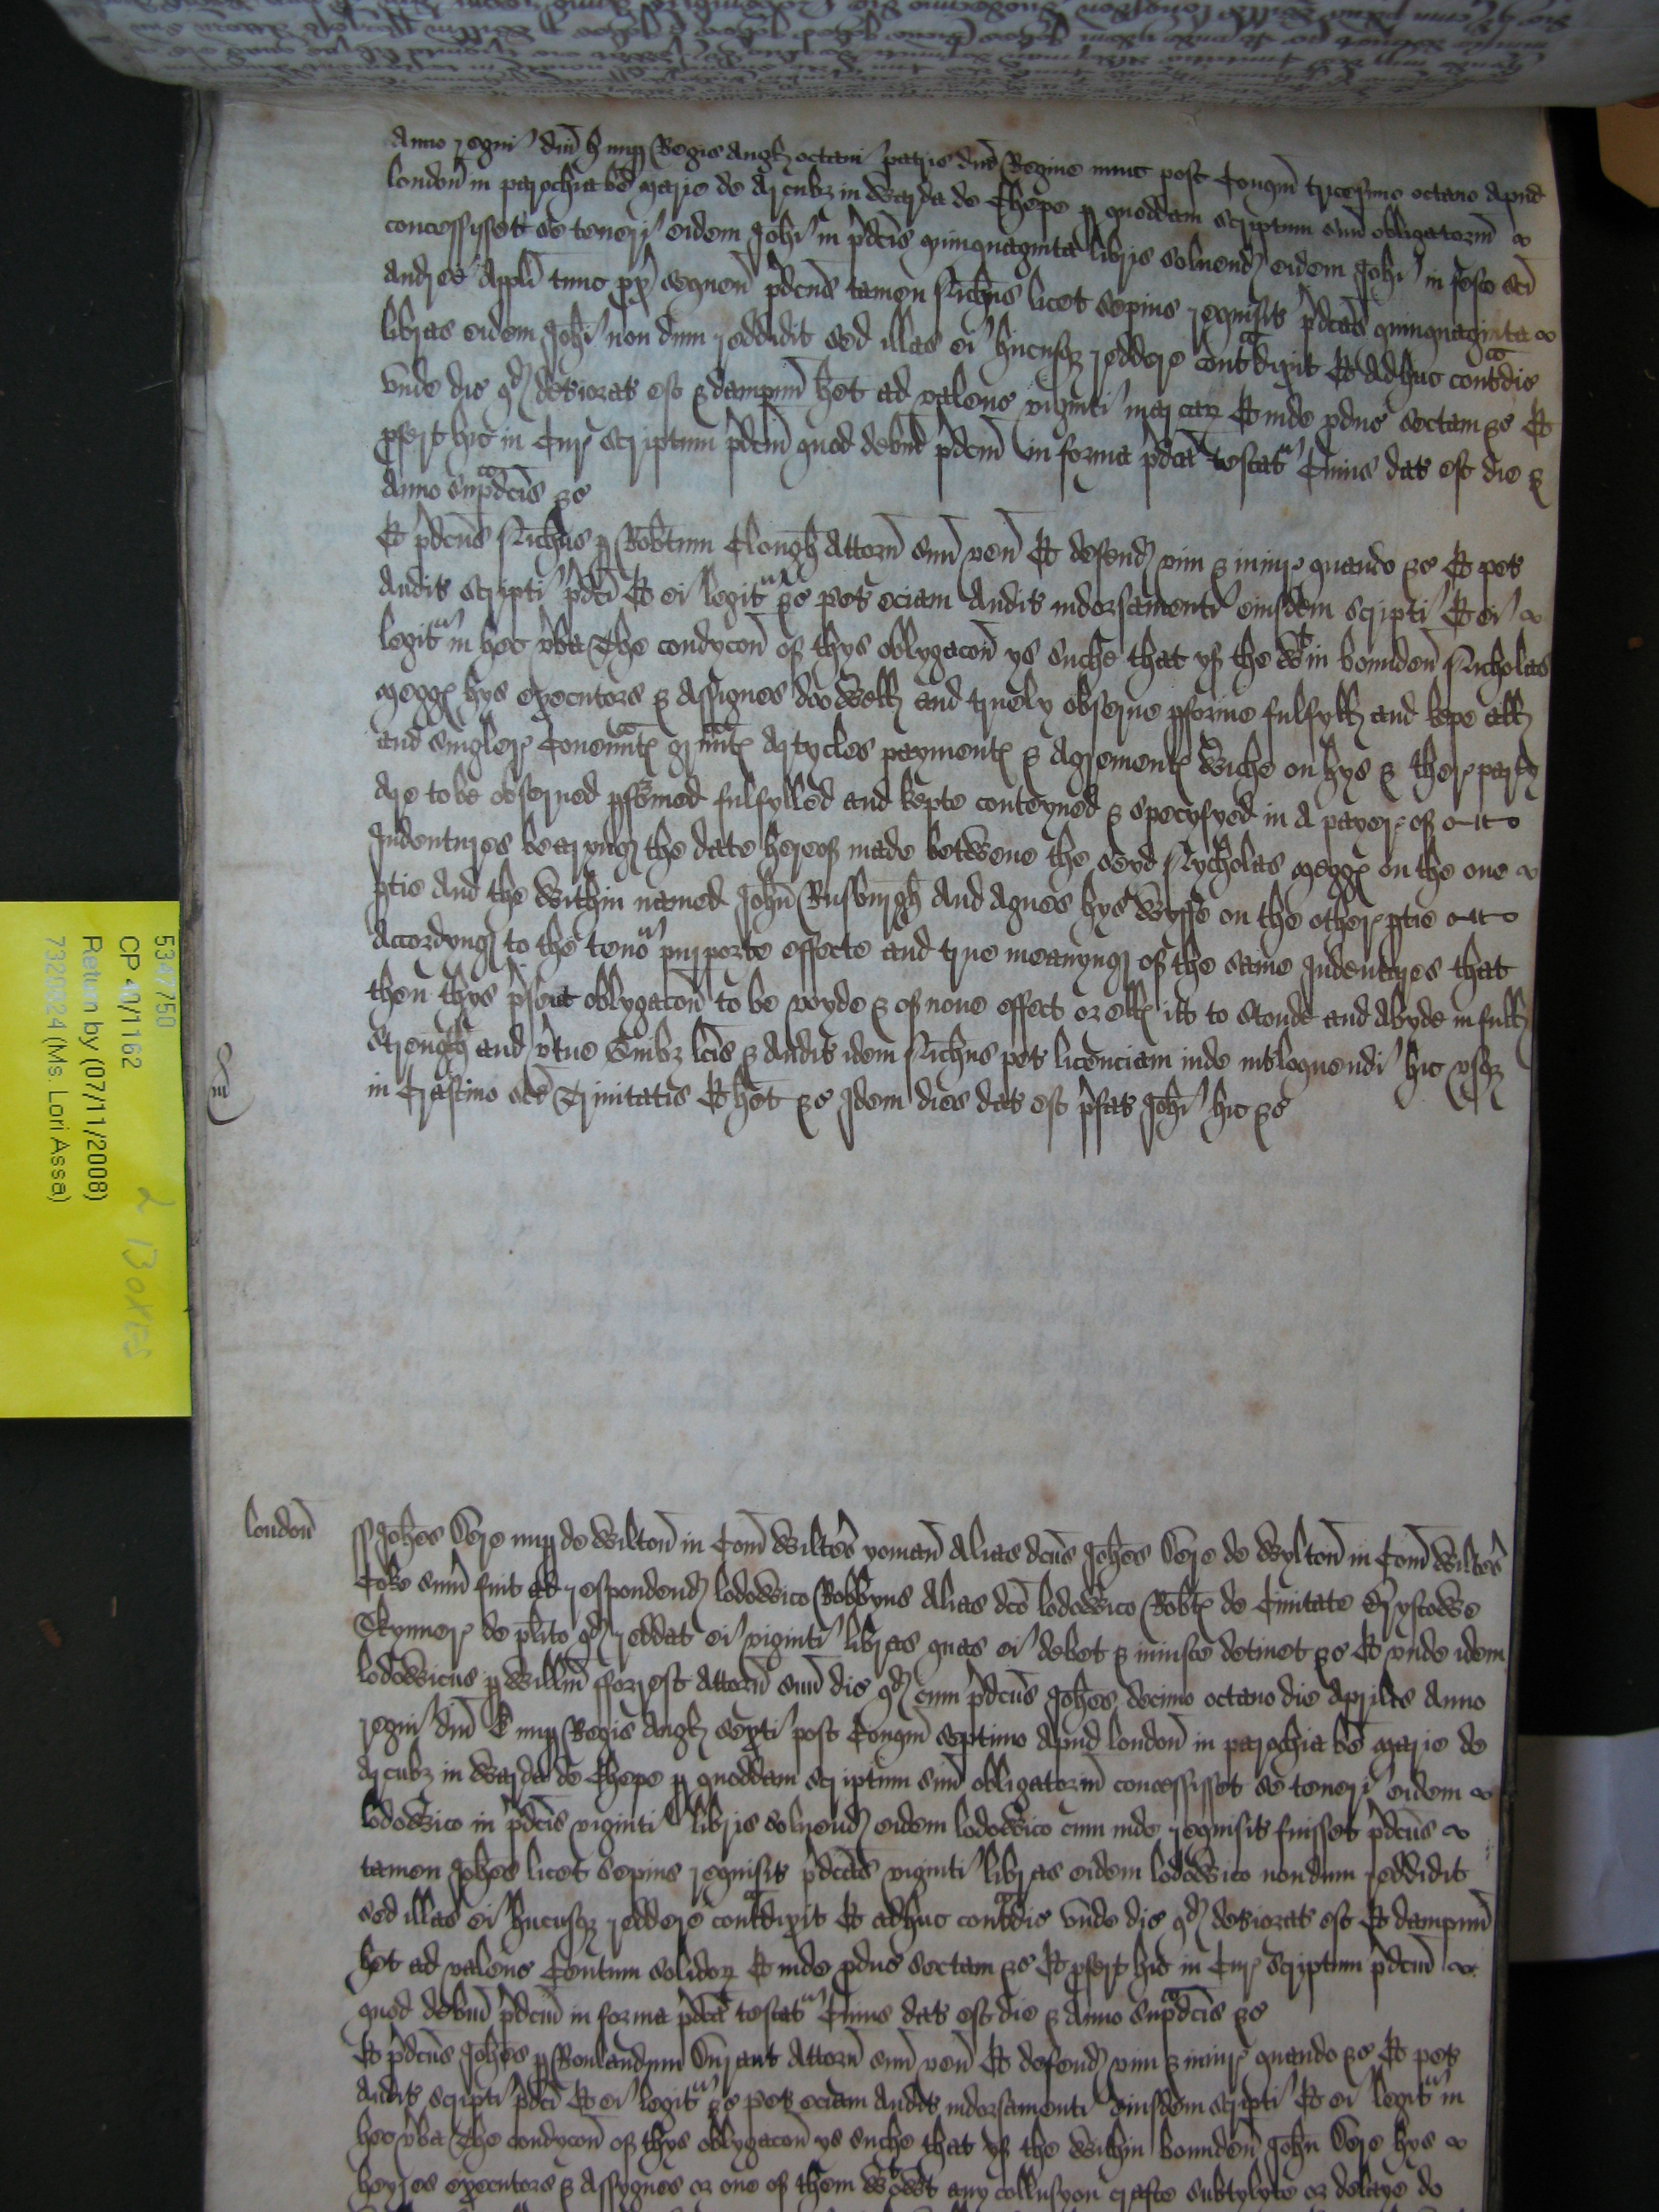 Anno regni dni H nup Regis Angl octavi patris dne Regine nunc post Conqm tricesimo octavo apud
london in parochia be Marie de Arcubz in Warda de Chepe p quoddam scriptum suu obligatoriu
concessisset se teneri eidem Johi in pdcis quinquaginta libris solvend eidem Johi in festo sci
Andree Appli tunc px sequen pdcus tamen Nichus licet sepius requisit pdcas quinquaginta
libras eidem Johi non dum reddidit sed illas ei hucusqz reddere contdixit Et adhuc contdic
Unde dic qd deteriorat est & dampnu het ad valenc viginti marcar Et inde pduc sectam &c Et
pfert hic in Cur scriptum pdcm quod debitu pdcm in forma pdca testat Cuius dat est die &
Anno supdcis &c
Et pdcus Nichus p Robtum Clough Attorn suu ven Et defend vim & iniur quando &c Et pet
Audit scripti pdci Et ei legit &c pet eciam Audit indorsamenti eiusdem scripti Et ei
legit in hec vba The condycon of thys oblygacon ys suche that yf the wtin bounden Nicholas
Megge hys executors & Assignes doo well and truely observe pforme fulfyll and kepe all
and singler Covennte grnnte Artycles paymente & Agremente wiche on hys & ther party
Are to be observed pformed fulfylled and kepte conteyned & specyfyed in A payer of
Indentures bearyng the date hereof made betwene the seyd Nycholas Megge on the one
ptie And the within named John Rusburgh And Agnes hys wyffe on the other ptie
Accordyng to the teno purporte effecte and true meanyng of the same Indentures that
then thys psent oblygacon to be voyde & of none effect or elle itt to stonde and Abyde in full
strength and vtue Quibz lcis & Auditis idem Nichus pet licenciam inde intloquendi hic usqz
in Crastino sce Trinitatis Et het &c Idem dies dat est pfat Johi hic &c
london ss Johes Sere nup de Wilton in Com Wiltes yoman Alias dcus Johes Sere de Wylton in Com Wiltes
Coke sum fuit ad respondend lodowico Robbyns Alias dco lodowico Robte de Civitate Brystowe
Skynner de plito qd reddat ei viginti libras quas ei debet & iniuste detinet &c Et unde idem
lodowicus p Willm fforest Attorn suu dic qd cum pdcus Johes decimo octavo die Aprilis Anno
regni dni E nup Regis Angl sexti post Conqm septimo Apud london in parochia be Marie de
Arcubz in Warda de Chepe p quoddam scriptum suu obligatoriu concessisset se teneri eidem
lodowico in pdcis viginti libris solvend eidem lodowico cum inde requisit fuisset pdcus
tamen Johes licet sepius requisit pdcas viginti libras eidem lodowico nondum reddidit
sed illas ei hucusqz reddere contdixit Et adhuc contdic Unde dic qd deteriorat est Et dampnu
het ad valenc Centum solidor Et inde pduc sectam &c Et pfert hic in Cur scriptum pdcm
quod debitu pdcm in forma pdca testat Cuius dat est die & Anno supdcis &c
Et pdcus Johes p Roulandum Attorn suu ven Et defend vim & iniur quando &c Et pet
Audit scripti pdci Et ei legit &c pet eciam Audit indorsamenti eiusdem scripti Et ei legit in
hec vba The condycon of thys oblygacon ys suche that yf the within bounden John Sere hys
heyres executors & Assygnes or one of them wowt any collusyon crafte subtylyte or delaye do
5347750
CP 40/1162
Return by (07/11/2008)
7320824 (Ms. Lori Assa)
2 Boxes